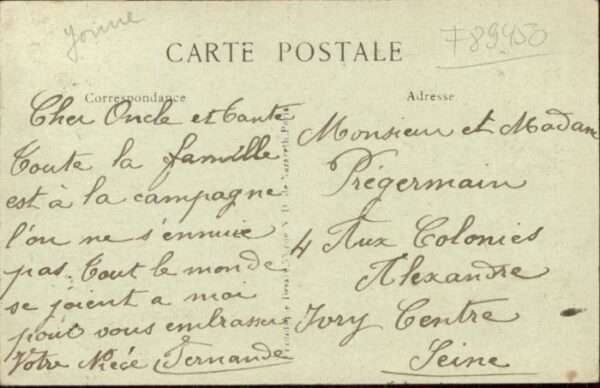 Yonne
F89450
CARTE POSTALE
Correspondance
Adresse
Cher Oncle et Tante
Toute la famille
est à la campagne
l'on ne s'ennuie
pas. Tout le monde
se joient a moi
pour vous embrasser
Votre Niece Fernande
Monsieur et Madam
Prégermain
4 Aux Colonies
Alexandre
Ivry Centre
Seine